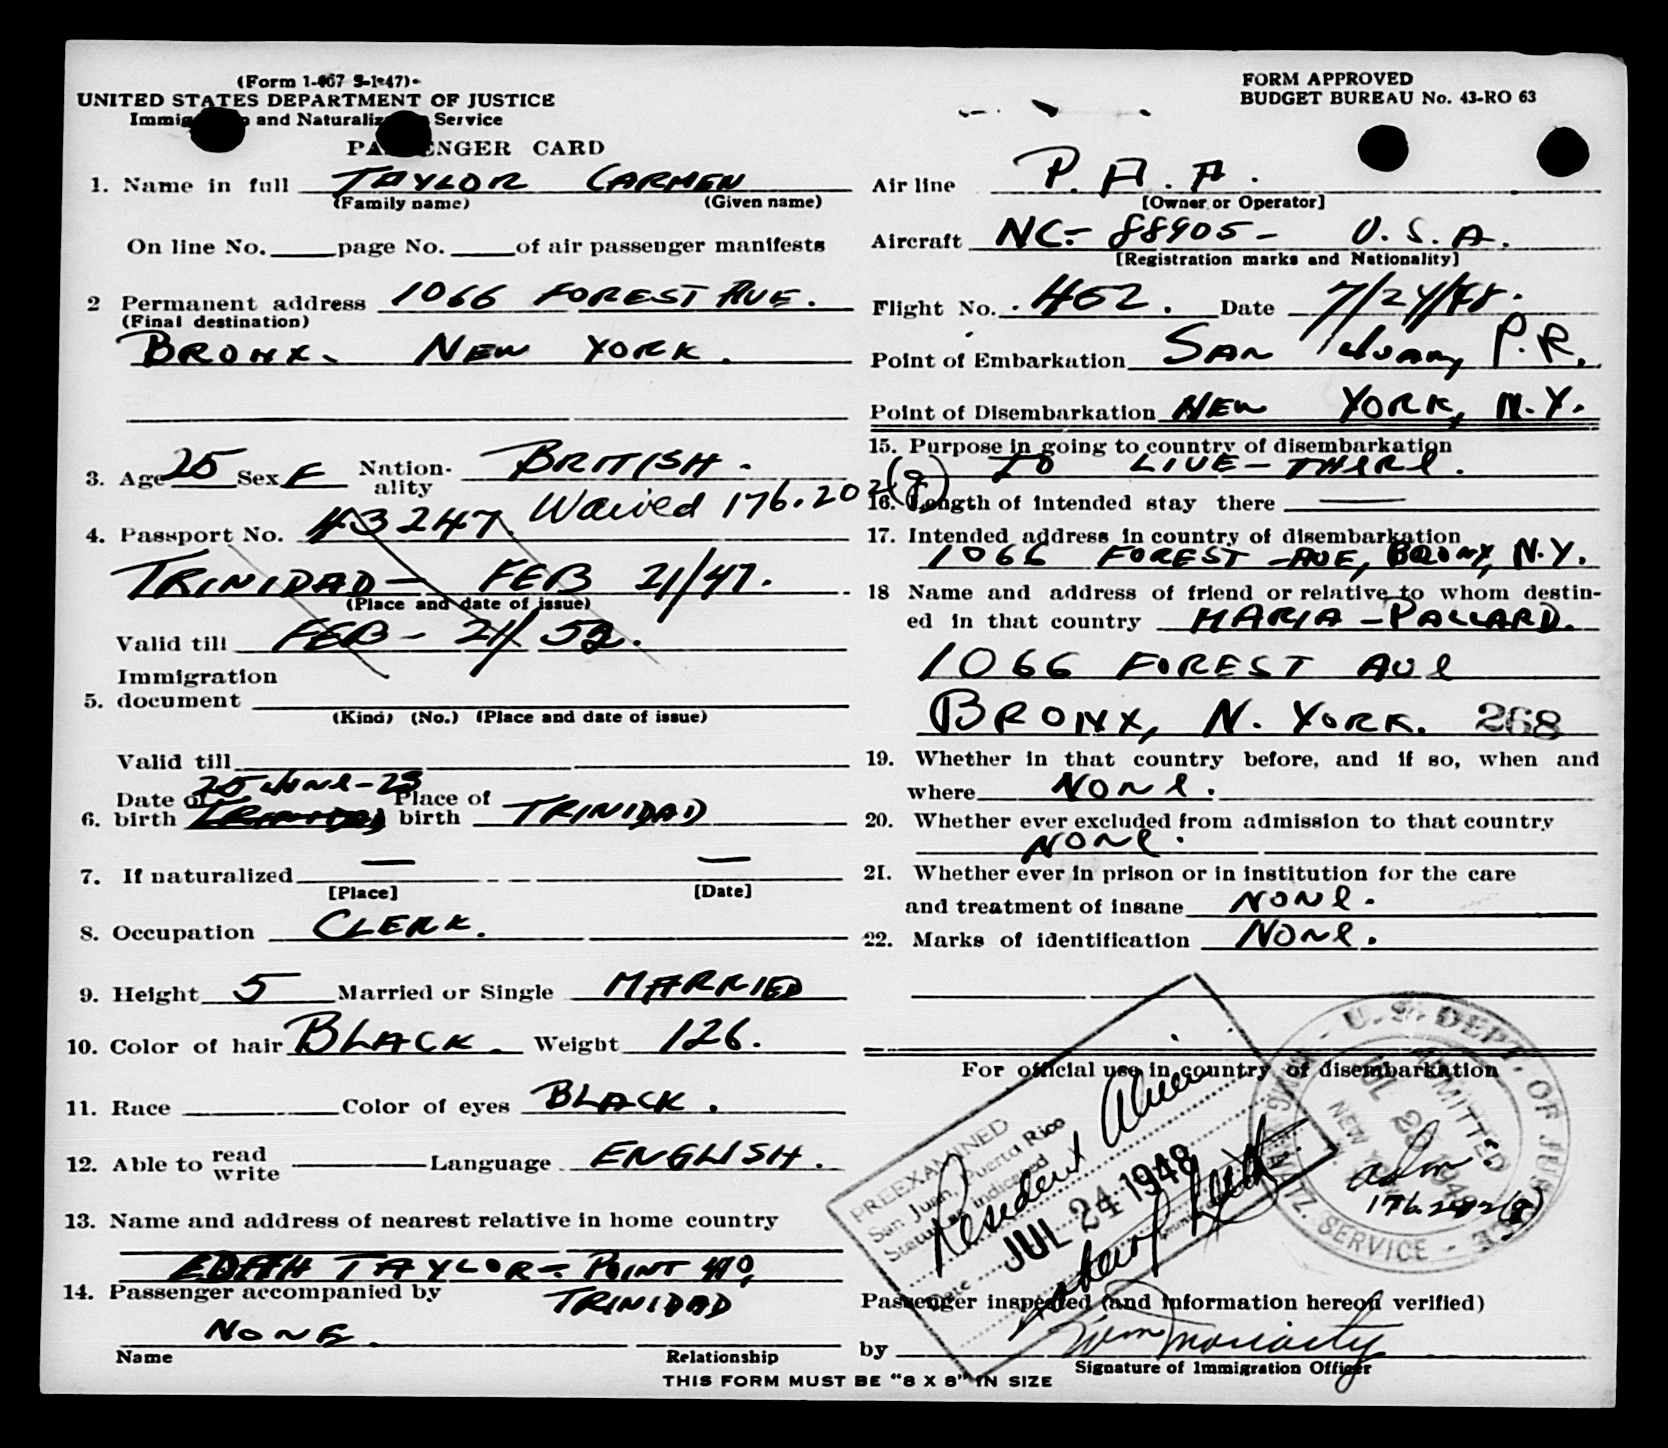 (Form 1-467 3-1-47)
UNITED STATES DEPARTMENT OF JUSTICE
Immigration and Naturalization Service
PASSENGER CARD
1. Name in full TAYLOR CARMEN
(Family name) (Given name)
On line No. page No. of air passenger manifests
2 Permanent address 1066 FOREST AVE.
(Final destination)
BRONX. NEW YORK.
3. Age 25 Sex F Nation-ality BRITISH.
Waived 176.202(g)
4. Passport No. 43247
TRINIDAD - FEB 21/47.
(Place and date of issue)
Valid till FEB - 21/52.
Immigration
5. document
(Kind) (No.) (Place and date of issue)
Valid till
25 JUNE-23
6. Date of birth Place of birth TRINIDAD
7. If naturalized — —
[Place] [Date]
8. Occupation CLERK.
9. Height 5 Married or Single MARRIED
10. Color of hair BLACK. Weight 126.
11. Race Color of eyes BLACK.
12. Able to read write Language ENGLISH.
13. Name and address of nearest relative in home country
EDITH TAYLOR - POINT
TRINIDAD
14. Passenger accompanied by
NONE.
Name Relationship
THIS FORM MUST BE "8 X 8" IN SIZE
FORM APPROVED
BUDGET BUREAU No. 43-RO 63
Air line P.A.A.
[Owner or Operator]
Aircraft NC-88905- U.S.A.
[Registration marks and Nationality]
Flight No. 452. Date 7/24/48.
Point of Embarkation SAN JUAN, P.R.
Point of Disembarkation NEW YORK, N.Y.
15. Purpose in going to country of disembarkation
TO LIVE - THERE.
16. Length of intended stay there —
17. Intended address in country of disembarkation
1066 FOREST -AVE, BRONX, N.Y.
18 Name and address of friend or relative to whom destin-
ed in that country MARIA - PALLARD.
1066 FOREST AVE
BRONX, N. YORK. 268
19. Whether in that country before, and if so, when and
where NONE.
20. Whether ever excluded from admission to that country
NONE.
21. Whether ever in prison or in institution for the care
and treatment of insane NONE.
22. Marks of identification NONE.
For official use in country of disembarkation
PREEXAMINED
San Juan, Puerto Rico
Status as indicated
Resident Alien
Date JUL 24 1948
U.S. DEPT. OF JUSTICE - IMMIG. & NATZ. SERVICE -
ADMITTED
JUL 1948
NEW YORK
adm
176.202(g)
Passenger inspected (and information hereon verified)
by Wm Moriarty
Signature of Immigration Officer